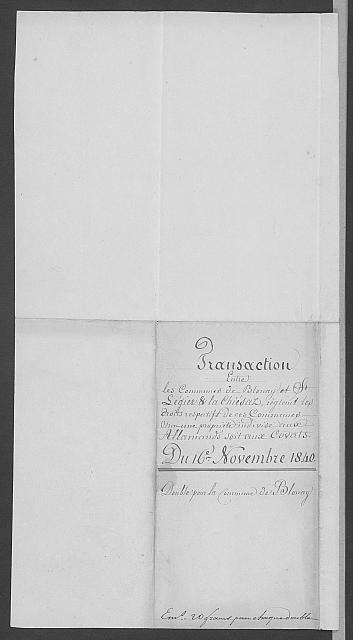 Transaction
Entre
les Communes de Blonay et St
Légier & la Chiésaz, réglant les
droits respectifs de ces Communes
sur une propriété indivise aux
Allamands soit aux Covats.
Du 16e Novembre 1840.
Double pour la Commune de Blonay
20 francs pour chaque double